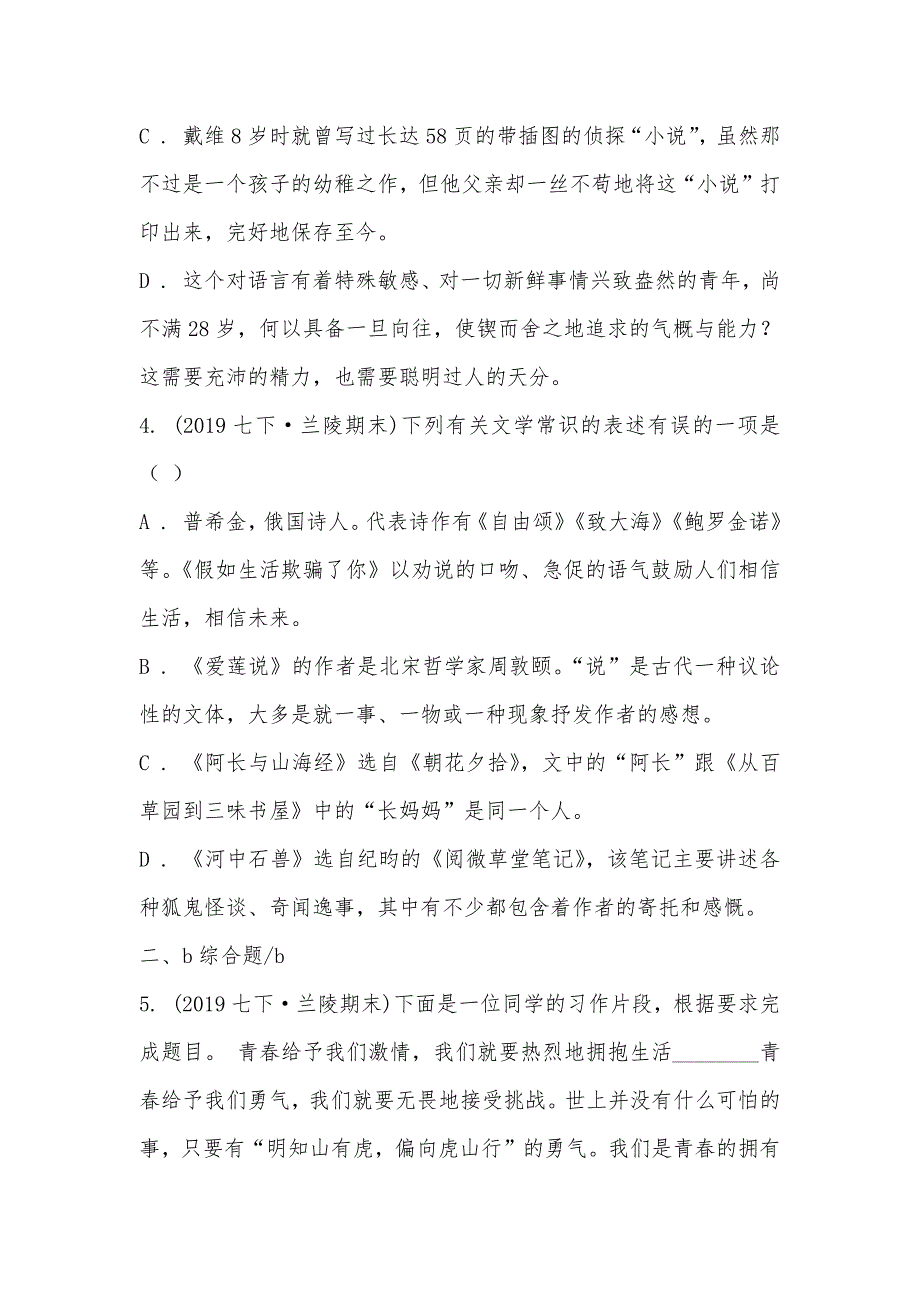 C . 戴维8岁时就曾写过长达58页的带插图的侦探“小说”，虽然那
不过是一个孩子的幼稚之作，但他父亲却一丝不苟地将这“小说”打
印出来，完好地保存至今。
D . 这个对语言有着特殊敏感、对一切新鲜事情兴致盎然的青年，尚
不满28岁，何以具备一旦向往，使锲而舍之地追求的气概与能力？
这需要充沛的精力，也需要聪明过人的天分。
4. (2019七下·兰陵期末)下列有关文学常识的表述有误的一项是
（ ）
A . 普希金，俄国诗人。代表诗作有《自由颂》《致大海》《鲍罗金诺》
等。《假如生活欺骗了你》以劝说的口吻、急促的语气鼓励人们相信
生活，相信未来。
B . 《爱莲说》的作者是北宋哲学家周敦颐。“说”是古代一种议论
性的文体，大多是就一事、一物或一种现象抒发作者的感想。
C . 《阿长与山海经》选自《朝花夕拾》，文中的“阿长”跟《从百
草园到三味书屋》中的“长妈妈”是同一个人。
D . 《河中石兽》选自纪昀的《阅微草堂笔记》，该笔记主要讲述各
种狐鬼怪谈、奇闻逸事，其中有不少都包含着作者的寄托和感慨。
二、b综合题/b
5. (2019七下·兰陵期末)下面是一位同学的习作片段，根据要求完
成题目。 青春给予我们激情，我们就要热烈地拥抱生活________青
春给予我们勇气，我们就要无畏地接受挑战。世上并没有什么可怕的
事，只要有“明知山有虎，偏向虎山行”的勇气。我们是青春的拥有